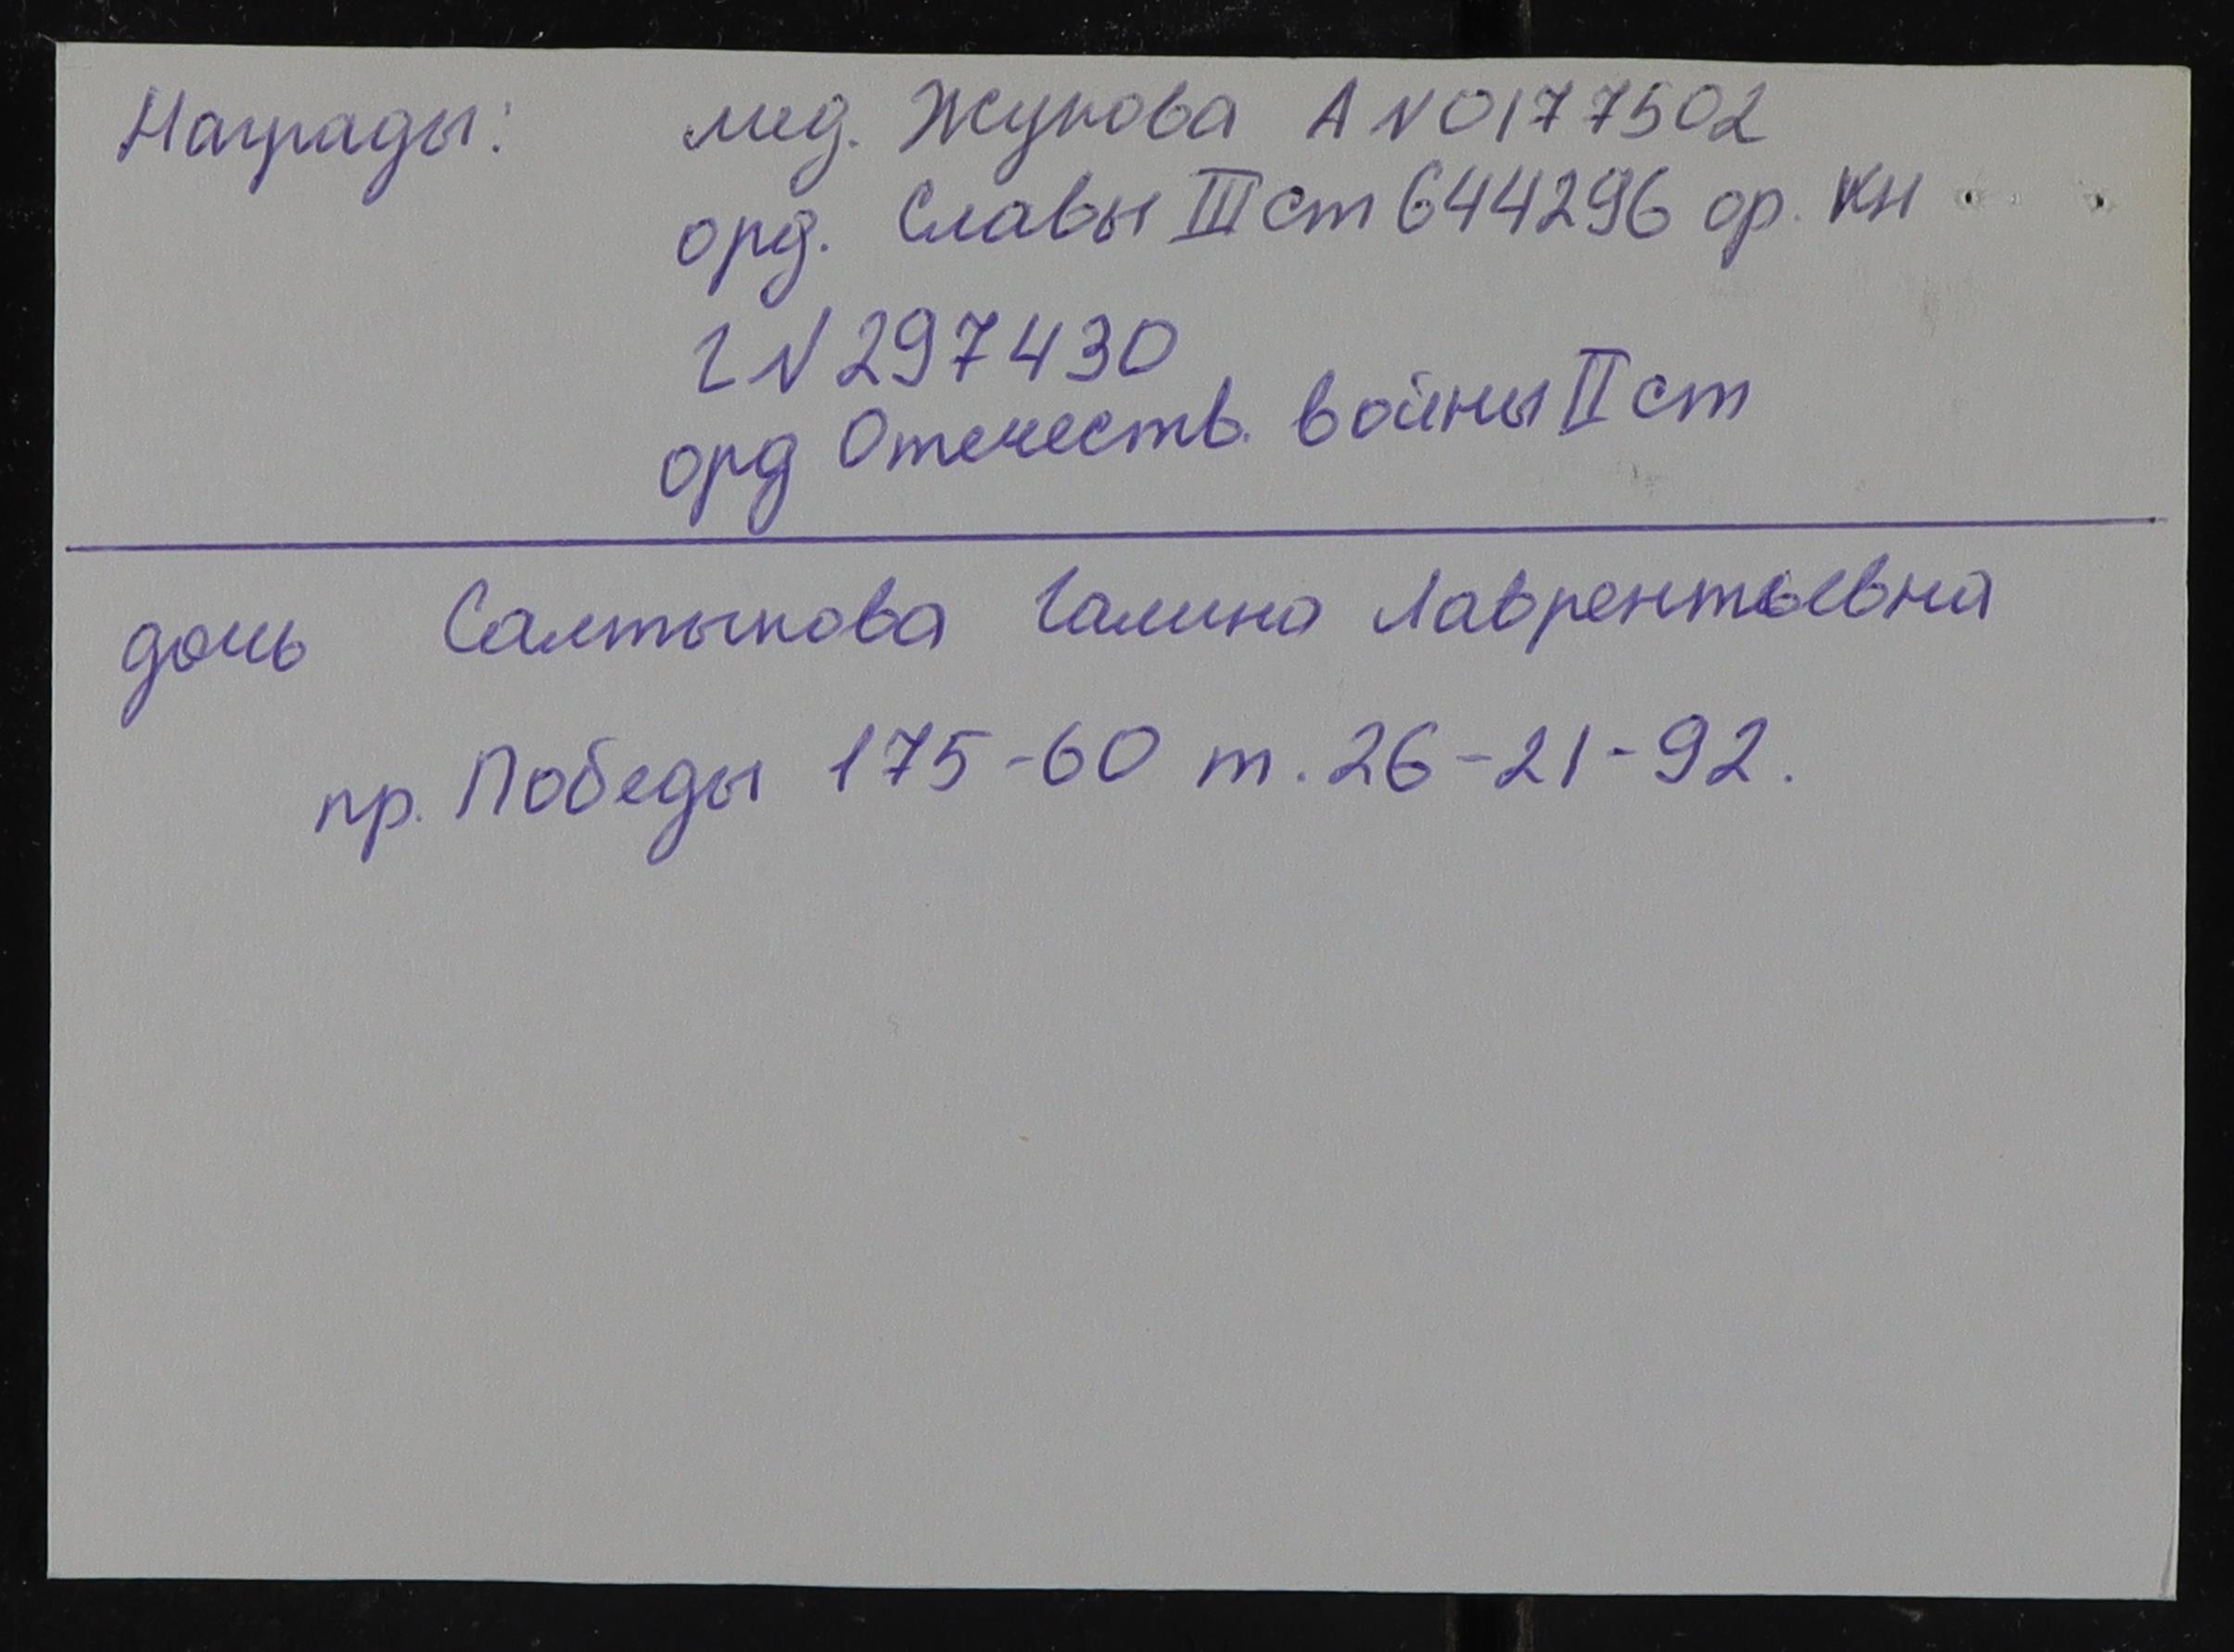 Награды: мед. Жукова А N 0177502
орд. Славы III ст 644296 ор. кн
Г N 297430
орд Отечеств. войны II ст
дочь Салтыкова Галина Лаврентьевна
пр. Победы 175-60 т. 26-21-92.